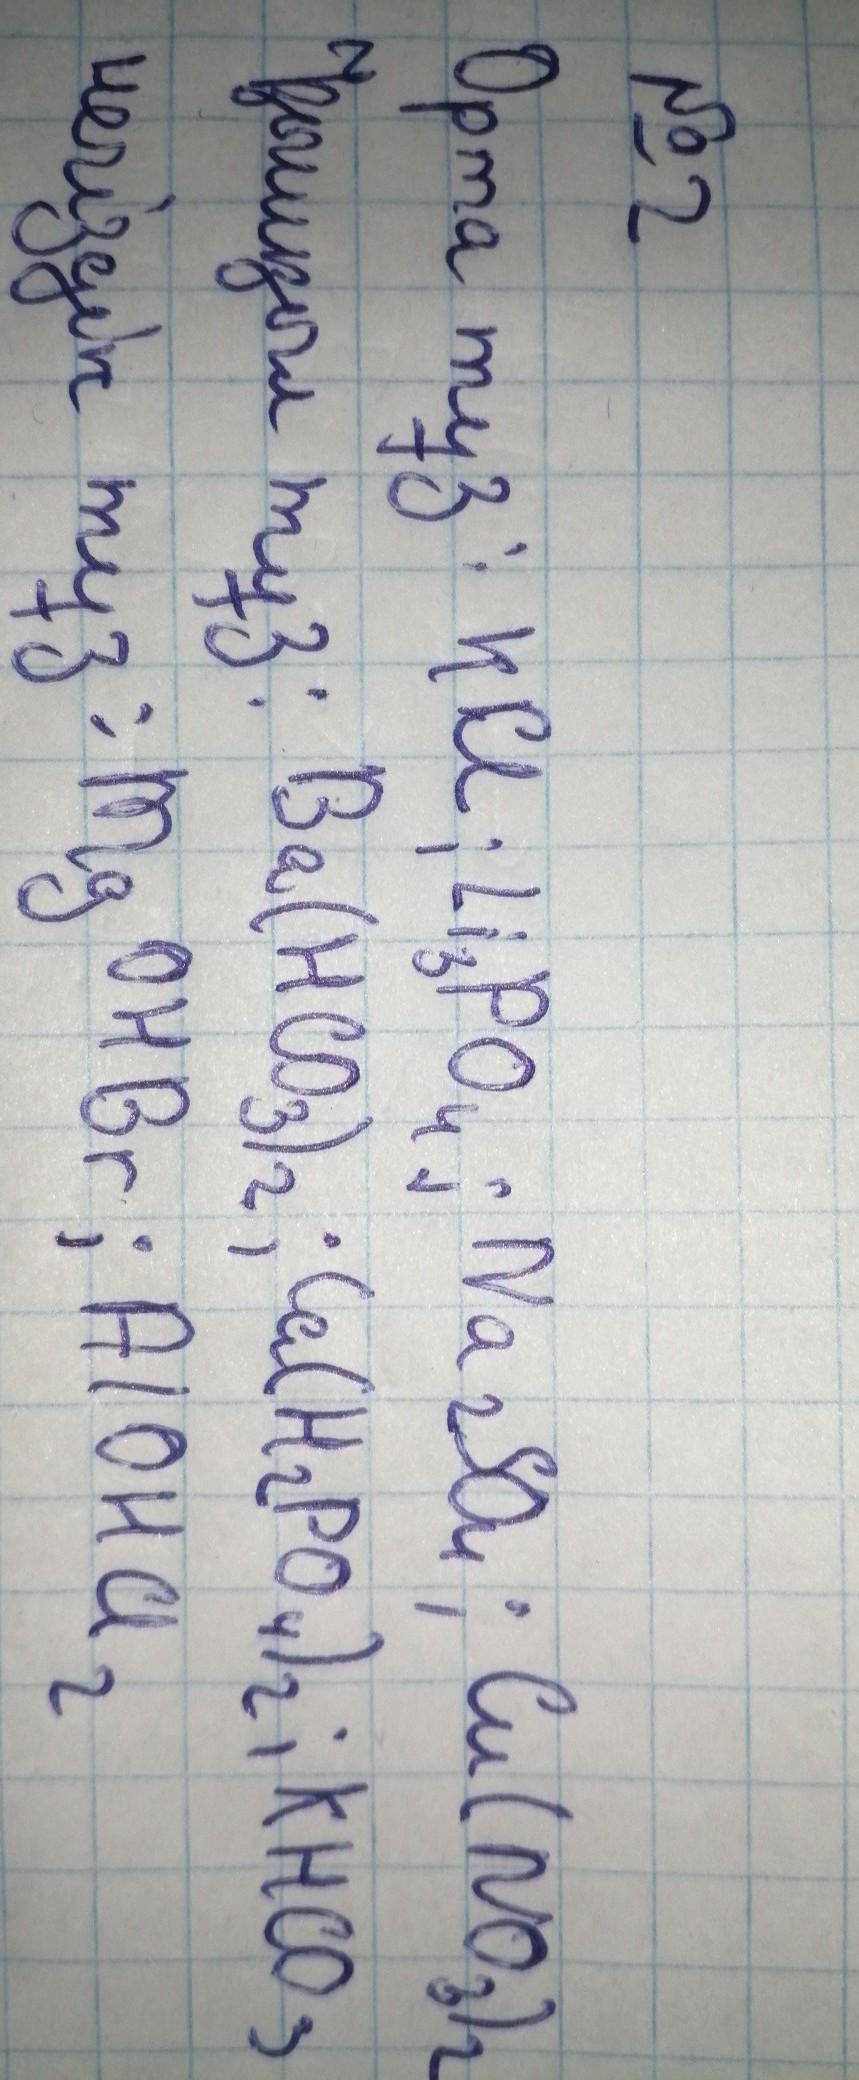 №2
Орта тұз: KCl; Li₃PO₄; Na₂SO₄; Cu(NO₃)₂
Қышқыл тұз: Ba(HCO₃)₂; Ca(H₂PO₄)₂; KHCO₃
негіздік тұз: MgOHBr; AlOHCl₂